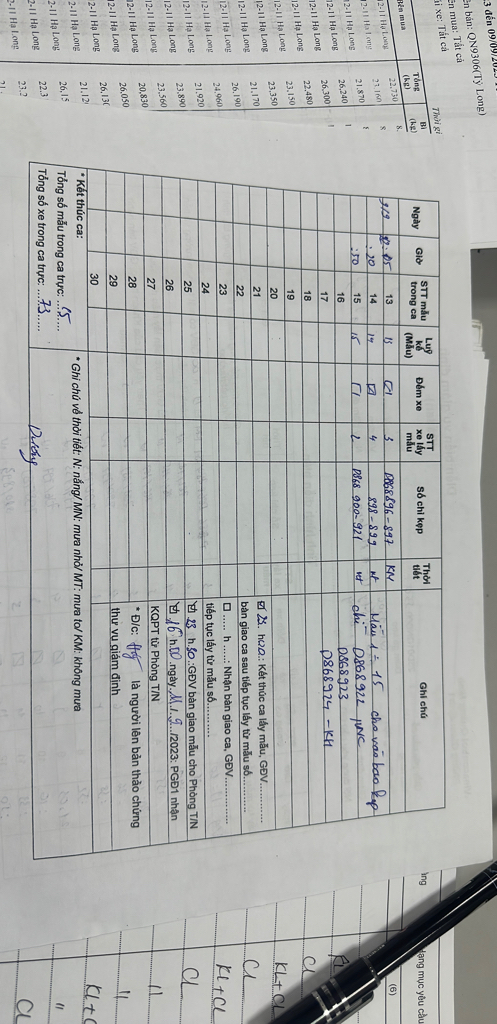 3 đến 09/09/202
ên bán: QN9306(Tỷ Long)
ên mua: Tất cả
ại xe: Tất cả
Thời gi
Bên mua
Tổng (kg)
Bì (kg)
12-11 Hạ Long 22.730 8.
12-11 Hạ Long 23.160 8.
12-11 Hạ Long 21.870 8
12-11 Hạ Long 26.240 1
12-11 Hạ Long 26.300 1
12-11 Hạ Long 22.480
12-11 Hạ Long 23.150
12-11 Hạ Long 23.350
12-11 Hạ Long 21.170
12-11 Hạ Long 26.190
12-11 Hạ Long 24.960
12-11 Hạ Long 21.920
12-11 Hạ Long 23.890
12-11 Hạ Long 23.560
12-11 Hạ Long 20.830
12-11 Hạ Long 26.050
2-11 Hạ Long 26.130
2-11 Hạ Long 21.120
2-11 Hạ Long 26.15
2-11 Hạ Long 22.3
-11 Hạ Long 23.2
Ngày Giờ STT mẫu trong ca Luỹ kế (Mẫu) Đếm xe STT xe lấy mẫu Số chì kẹp Thời tiết Ghi chú
9/9 :05 13 13 3 D868896-897 KN Mẫu 1-15 cho vào bao kẹp
:20 14 14 4 898-899 nt chì D868922
:50 15 15 2 D868 900-921 nt D868923
16 D868924 - KH
17
18
19
20
21
22
23
24
25
26
27
28
29
30
☑ 23. h20.: Kết thúc ca lấy mẫu, GĐV............
bàn giao ca sau tiếp tục lấy từ mẫu số............
☐ ...... h ......: Nhận bàn giao ca, GĐV............
tiếp tục lấy từ mẫu số............
☑ 23 h.30.:GĐV bàn giao mẫu cho Phòng T/N
☑ 16 h.50.ngày.11./.9../2023: PGĐ1 nhận
KQPT từ Phòng T/N
* Đ/c: là người lên bản thảo chứng
thư vụ giám định
* Kết thúc ca:
Tổng số mẫu trong ca trực: ...15......
Tổng số xe trong ca trực: ...73......
* Ghi chú về thời tiết: N: nắng/ MN: mưa nhỏ/ MT: mưa to/ KM: không mưa
Dương
ạng mục yêu cầu
(6)
CL
KL+CL
CL
KL+CL
CL
"
"
KL+C
"
CL